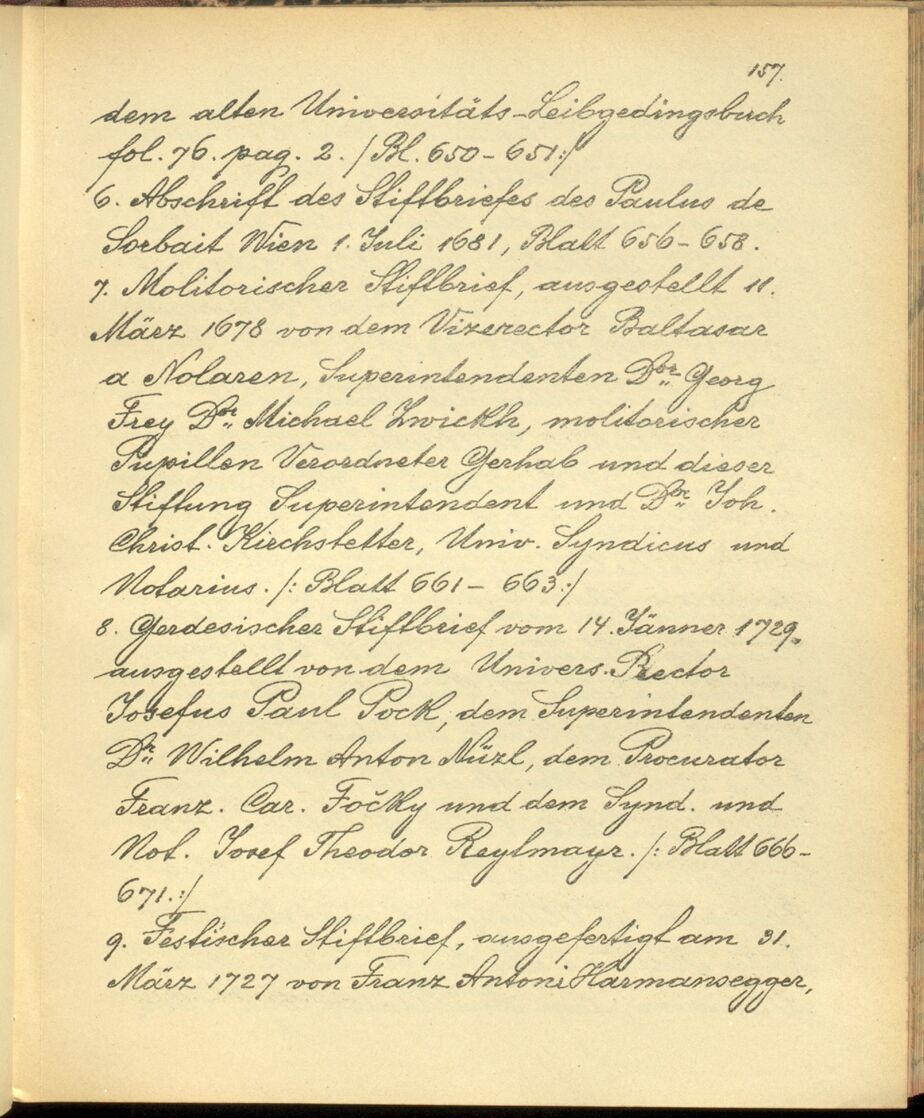 157.
dem alten Universitäts-Leibgedingsbuch
fol. 76. pag. 2. /Bl. 650-651:/
6. Abschrift des Stiftbriefes des Paulus de
Sorbait Wien 1. Juli 1681, Blatt 656-658.
7. Molitorischer Stiftbrief, ausgestellt 11.
März 1678 von dem Vizerector Baltasar
a Nolaren, Superintendenten Dor. Georg
Frey Dor. Michael Zwickh, molitorischer
Pupillen Verordneter Gerhab und dieser
Stiftung Superintendent und Dor. Joh.
Christ. Kirchstetter, Univ. Syndicus und
Notarius. /: Blatt 661-663:/
8. Gerdesischer Stiftbrief vom 14. Jänner 1729.
ausgestellt von dem Univers. Rector
Josefus Paul Pock, dem Superintendenten
Dr. Wilhelm Anton Nüzl, dem Procurator
Franz. Car. Fočky und dem Synd. und
Not. Josef Theodor Reylmayr. /: Blatt 666-
671.:/
9. Festischer Stiftbrief, ausgefertigt am 31.
März 1727 von Franz Antoni Harmansegger,